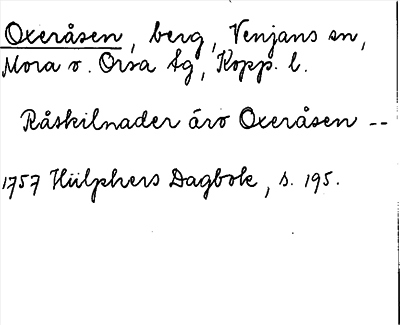 Oxeråsen, berg, Venjans sn,
Mora o. Orsa tg, Kopp. l.
Råskilnader äro Oxeråsen --
1757 Hülphers Dagbok, s. 195.